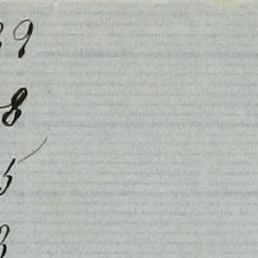 9
8
5
3